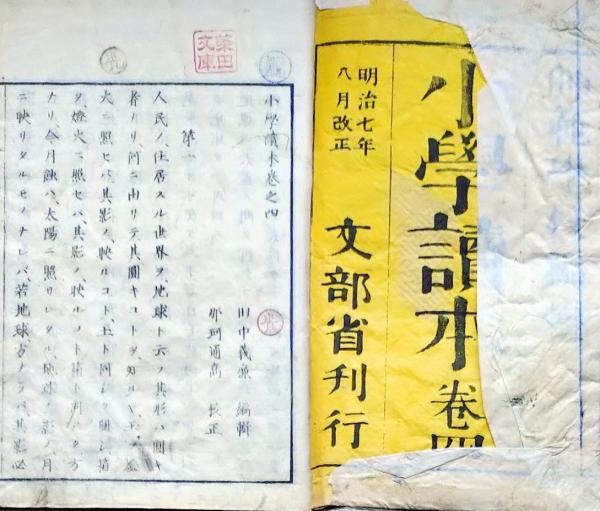 小學讀本 卷四
明治七年
八月改正
文部省刊行
文庫
小學讀本卷之四
田中義廉 編輯
那珂通高 校正
第一
人民ノ、住居スル世界ヲ、地球ト云フ、其形ハ、圓キ
者ナリ、何ニ由リテ、其圓キコトヲ、知ルヤ、玉ヲ、燈
火ニ照セバ、其影ノ、映ルコト、玉ト同シク圓シ、箱
ヲ、燈火ニ照セバ、其影ノ、映ルコト、箱ト同シク方
ナリ、今月蝕ハ、太陽ニ照サレタル、地球ノ影ノ、月
ニ映リタルモノナレバ、若地球、方ナラバ、其影必